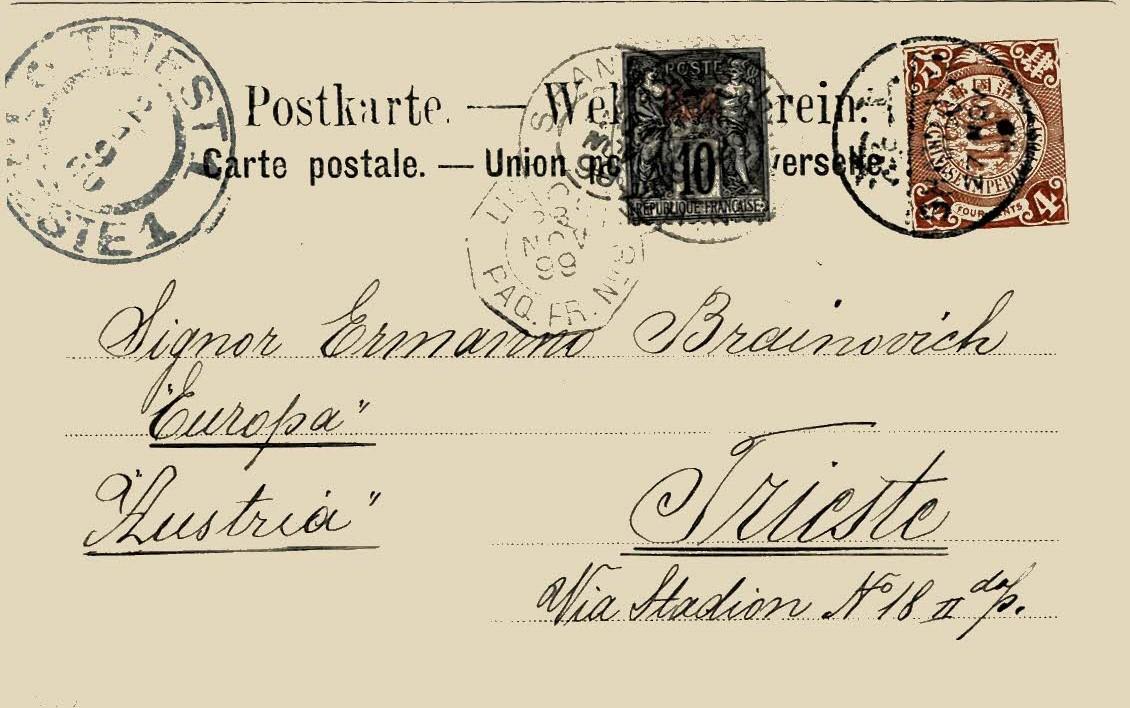 TRIESTE
STE 1
Postkarte. — Wel rein.
Carte postale. — Union po verselle.
POSTE
10
RÉPUBLIQUE FRANÇAISE
FOUR CENTS
4
NOV
99
PAQ. FR. Nº 8
Signor Ermanno Brainovich
"Europa"
"Austria"
Trieste
Via Stadion Nº 18 II do/p.